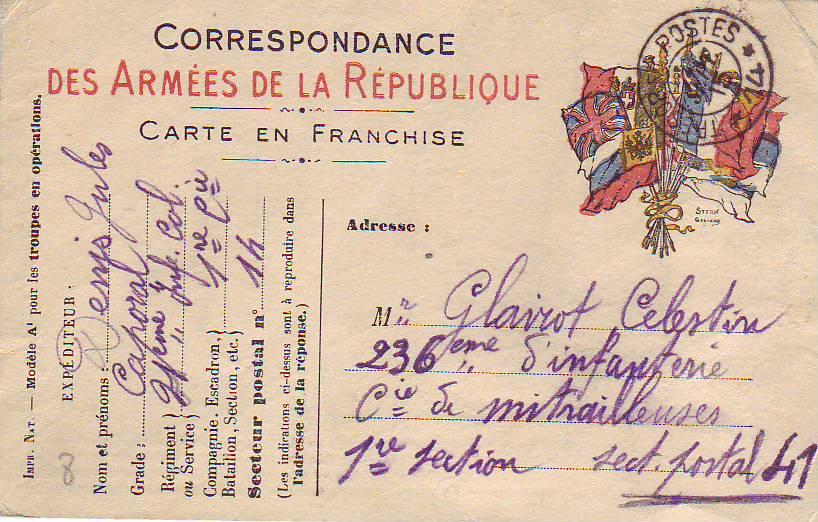 CORRESPONDANCE
DES ARMÉES DE LA RÉPUBLIQUE
CARTE EN FRANCHISE
POSTES * 14
STERN
Adresse :
Mr Glairot Celestin
236eme d'infanterie
Cie de mitrailleuses
1re section sect. postal 41
IMPR. NAT. — Modèle A1 pour les troupes en opérations.
EXPÉDITEUR :
Nom et prénoms : Denis Jules
Grade : Caporal
Régiment } 21eme Inf. Col.
ou Service)
Compagnie, Escadron, } 1re Cie
Bataillon, Section, etc.)
Secteur postal n° 14
(Les indications ci-dessus sont à reproduire dans
l'adresse de la réponse.)
8